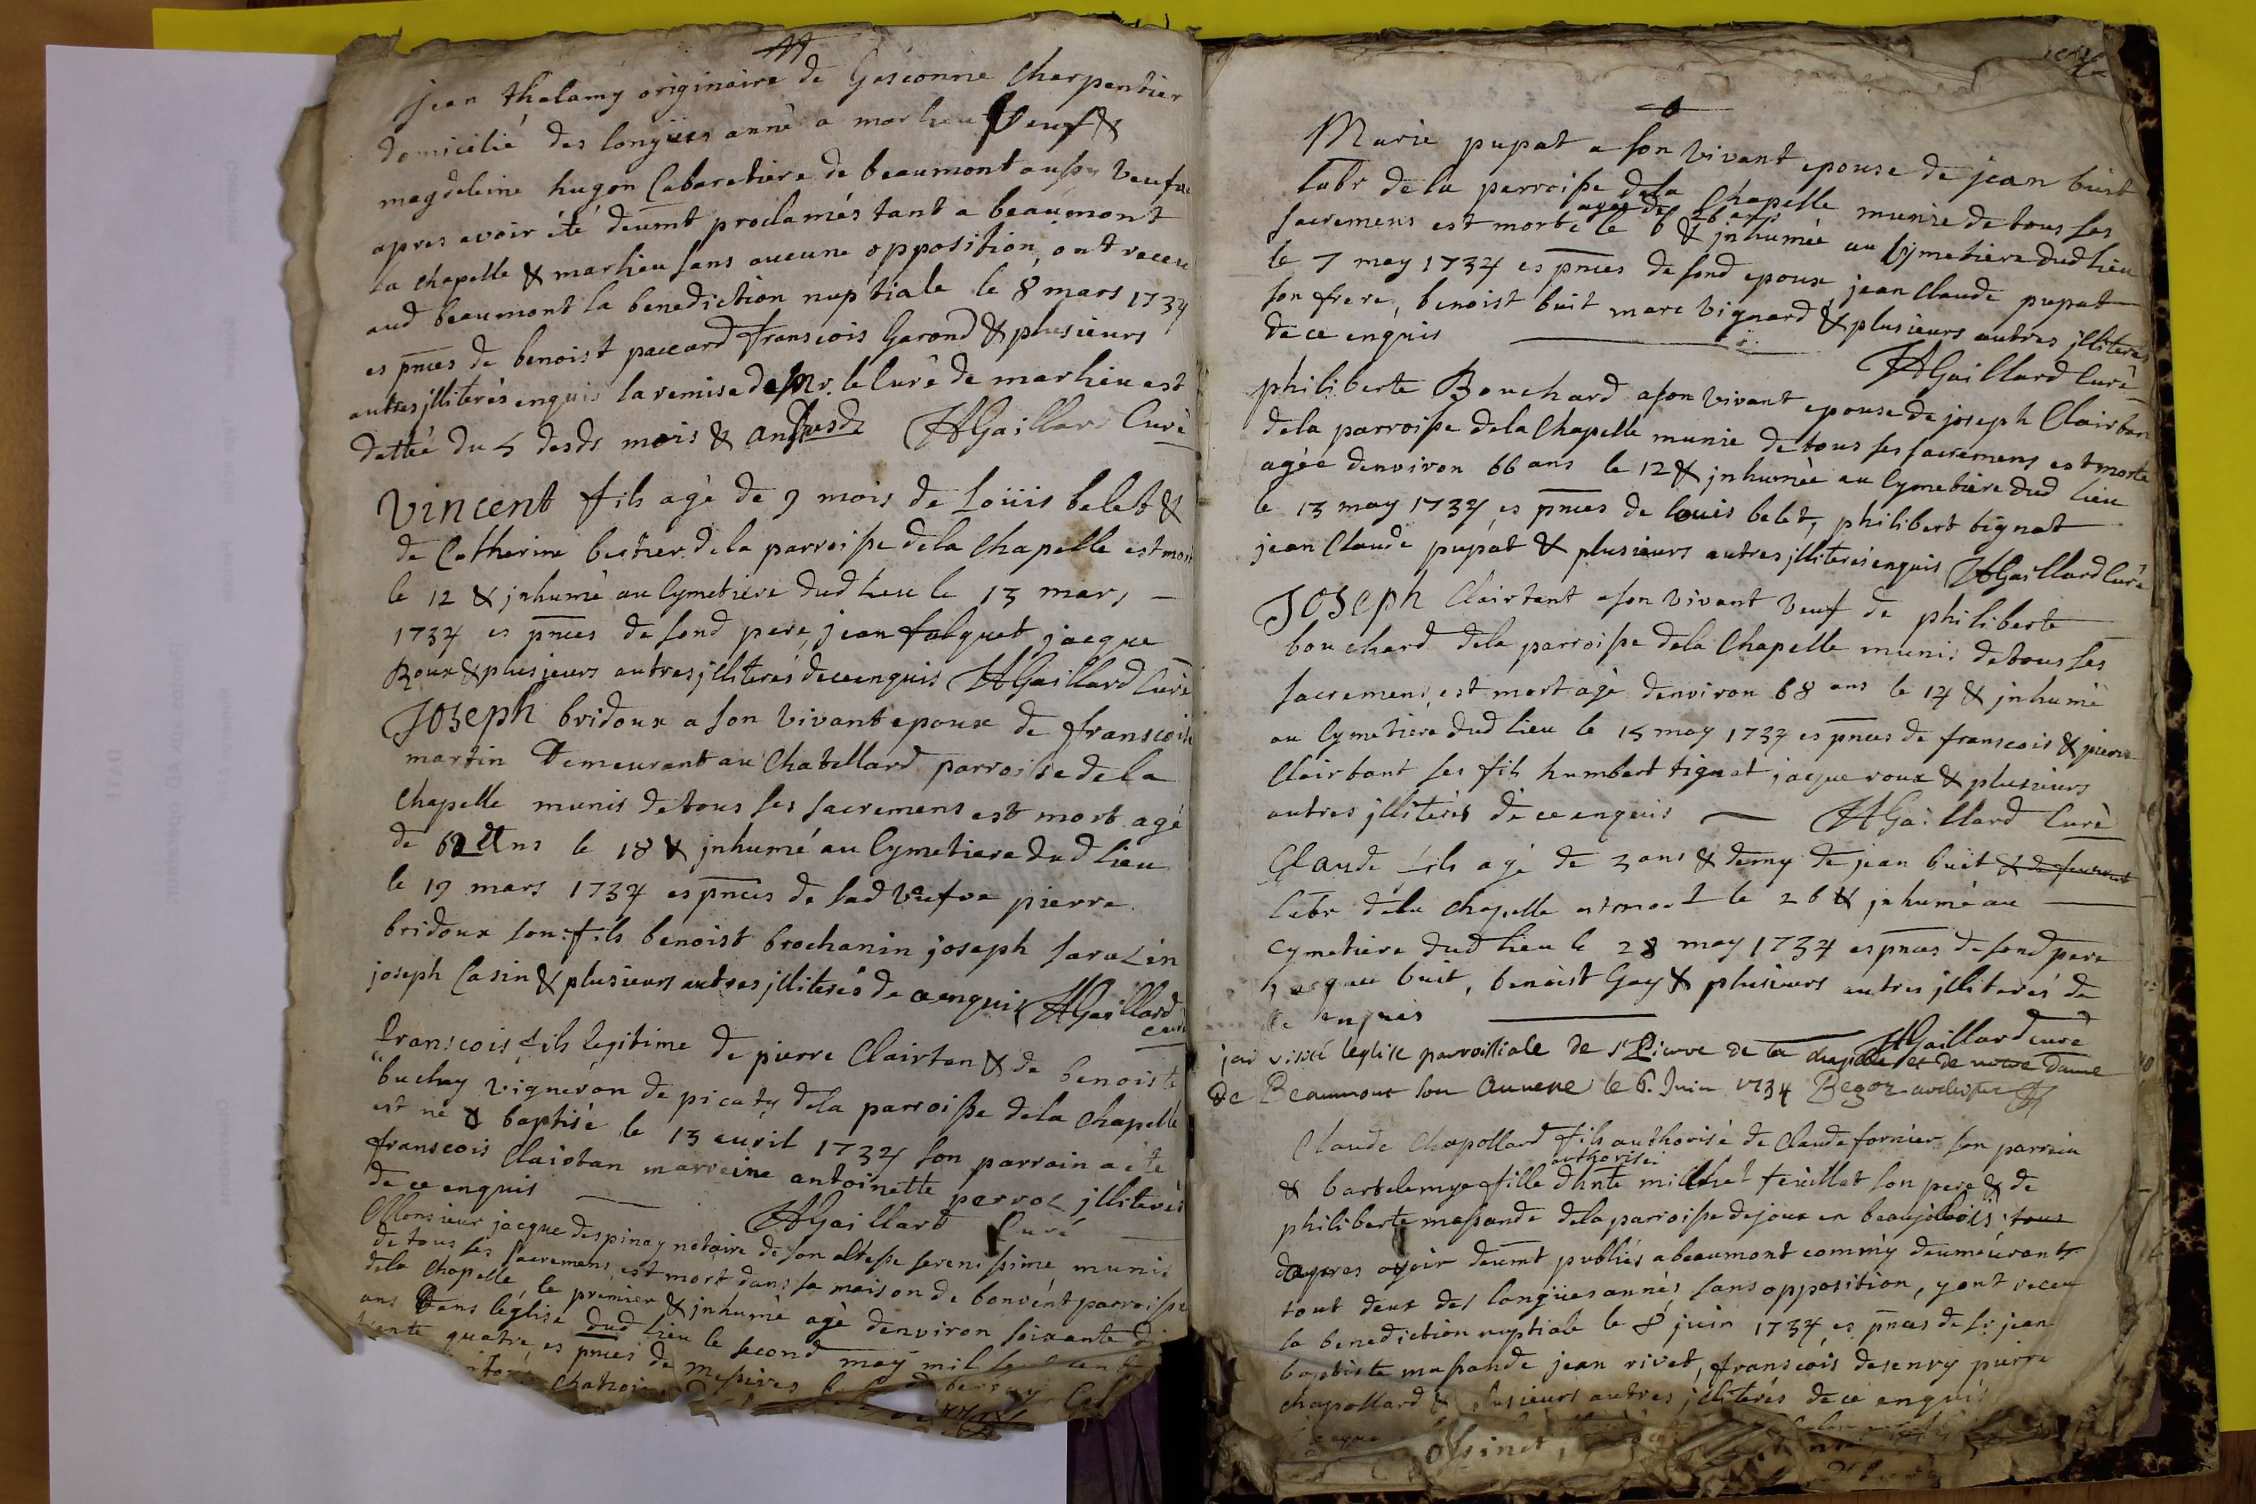 jean thalamy originaire de Gasconne charpentier
domicilié des longües annè a marlieu Veuf &
magdeleine hugon Cabaretiere de beaumont aussy veufve
apres avoir été deumt proclamés tant a beaumont
la chapelle & marlieu sans aucune opposition, ont receu
aud beaumont la benediction nuptiale le 8 mars 1734
es pnces de benoist paccard franscois Garond & plusieurs
autres illiterés enquis la remise de Mr. le Curé de marlieu est
dattée du 5 desds mois & an susds HGaillard Curé
Vincent fils agè de 9 mois de Loüis belet &
de Catherine bectier de la parroisse dela Chapelle est mort
le 12 & inhumè au Cymetiere dud lieu le 13 mars
1734 es pnces de sond pere, jean falquet jacque
Roux & plusieurs autres illiterés de ce enquis HGaillard Curè
Joseph bridoux a son vivant epoux de franscoise
martin Demeurant au Chatellard parroisse de la
Chapelle munis de tous ses sacremens est mort agé
de 62 Ans le 18 & inhumé au Cymetiere dud lieu
le 19 mars 1734 es pnces de sad Veufve pierre
bridoux son fils benoist brochanin joseph sarazin
joseph Casin & plusieurs autres illiterés de ce enquis HGaillard
curé
franscois fils legitime de pierre Clairtan & de benoiste
buchy vigneron de picaty dela parroisse dela Chapelle
est né & baptisé le 13 avril 1734 son parrain a été
franscois Clairtan marreine antoinette perroz illiterés
de ce enquis HGaillard Curé
Monsieur jacque despinay notaire de son altesse serenissime munis
de tous ses sacremens, est mort dans sa maison de bonvént parroisse
dela Chapelle le premier & inhumé agé denviron soixante di
ans Dans léglise dud lieu le second may mil sept cent
trente quatre, es pnces de messires
Marie pupat a son vivant epouse de jean buit
labr de la parroisse dela Chapelle munie de tous ses
agée de 26 ans
sacremens est morte le 6 & inhumée au Cymetiere dud lieu
le 7 may 1734 es pnces de sond epoux jean Claude pupat
son frere, benoist buit marc vignard & plusieurs autres illiterés
de ce enquis
HGaillard Curé
philiberte Bouchard a son vivant epouse de joseph Clairtan
dela parroisse dela Chapelle munie de tous ses sacremens est morte
agée denviron 66 ans le 12 & inhumèe au Cymetiere dud lieu
le 13 may 1734, es pnces de louis belet, philibert tignat
jean Claude pupat & plusieurs autres illiterés enquis HGaillard Curé
Joseph Clairtant a son vivant veuf de philiberte
bouchard dela parroisse dela Chapelle munis de tous ses
sacremens, est mort agè denviron 68 ans le 14 & inhumè
au Cymetiere dud lieu le 15 may 1734 es pnces de franscois & pierre
Clairtant ses fils humbert tignat, jacque roux & plusieurs
autres illiterès de ce enquis HGaillard Curè
Claude fils agé de 3 ans & demy de jean buit
labr dela chapelle est mort le 26 & inhumé au
cymetiere dud lieu le 28 may 1734 es pnces de sond pere
jacque buit, benoist Gay & plusieurs autres illiterés de
ce enquis
HGaillard curé
jai visité leglise parroissiale de st Pierre de la chapelle et de notre dame
de Beaumont son annexe le 6. Juin 1734 Begoz archiptre
Claude Chapollard fils authorisé de Claude fornier son parrain
authorisée
& bartelemye fille dhnte michel feüillat son pere & de
philiberte massande dela parroisse de joux en beaujolois
apres avoir deumt publiés a beaumont commy deumeurants
tout deux des longües annés, sans opposition, y ont receu
la benediction nuptiale le 8 juin 1734, es pnces de sr jean
baptiste massande jean rivet, franscois desenvy pierre
chapollard & plusieurs autres illiterés de ce enquis